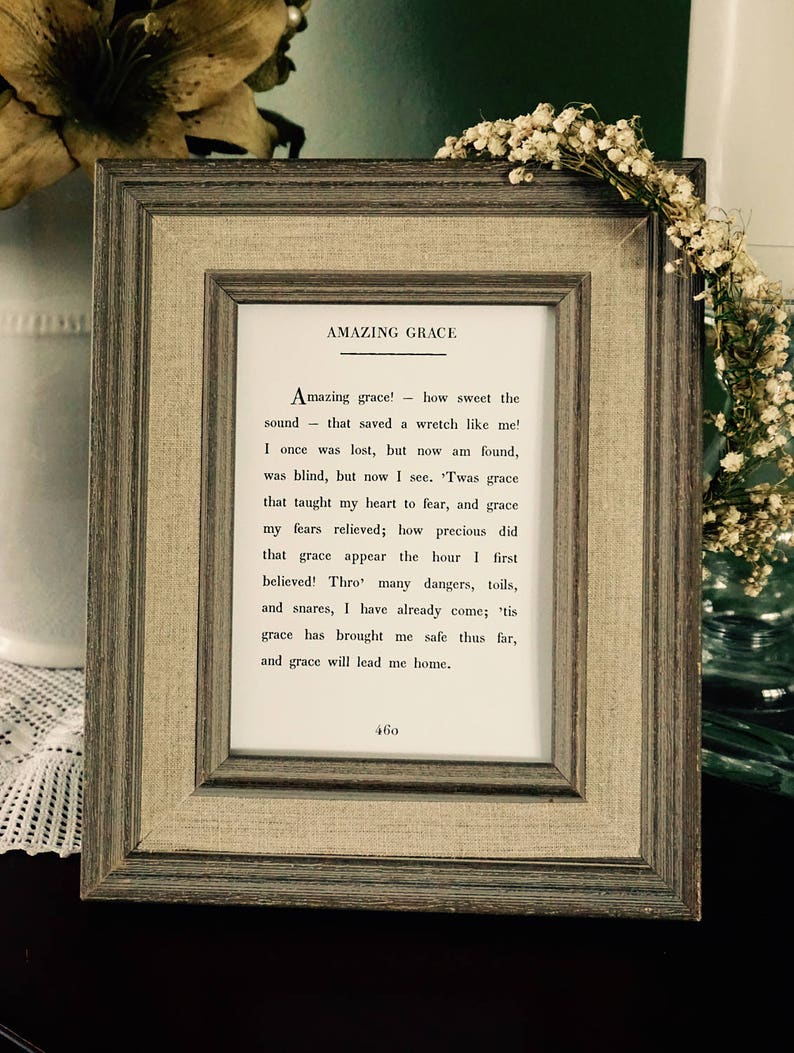 AMAZING GRACE
Amazing grace! — how sweet the
sound — that saved a wretch like me!
I once was lost, but now am found,
was blind, but now I see. ’Twas grace
that taught my heart to fear, and grace
my fears relieved; how precious did
that grace appear the hour I first
believed! Thro’ many dangers, toils,
and snares, I have already come; ’tis
grace has brought me safe thus far,
and grace will lead me home.
460